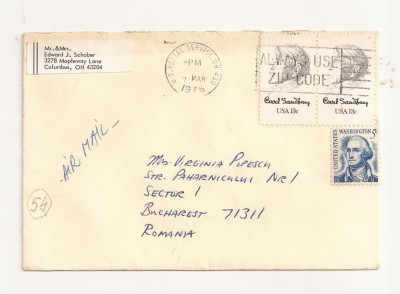 Mr.&Mrs.,
Edward J. Schober
3278 Mapleway Lane
Columbus, OH 43204
U.S. POSTAL SERVICE, OH
PM
MAR
ALWAYS USE
ZIP CODE
Carl Sandburg
USA 13c
Carl Sandburg
USA 13c
UNITED STATES
WASHINGTON 5c
AIR MAIL
Mrs Virginia Popescu
Str. Paharnicului Nr 1
Sector 1
Bucharest 71311
Romania
54